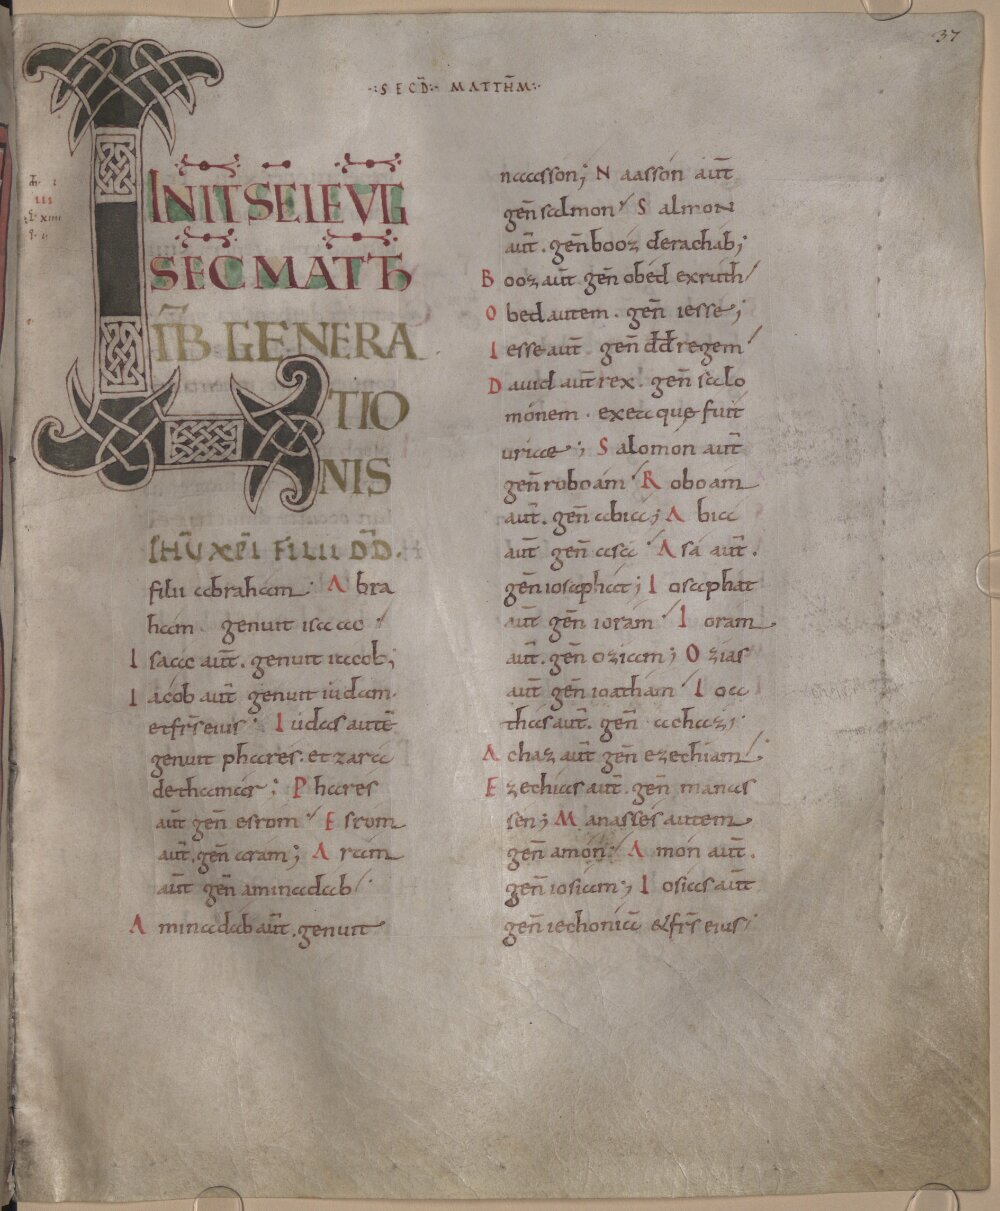 37
·:SECD̄:· MATTH̄M:·
INIT SEI EVG̅
SEC MATTH̄
LIB̄ GENERA
TIO
NIS
IHŪ XP̄I FILII DD̄.
filii abraham· Abra
ham genuit isaac·
Isaac aut̄. genuit iacob;
Iacob aut̄ genuit iudam·
et fr̄s eius· Iudas autē
genuit phares. et zara
de thamar; Phares
aut̄ gen̄ esrom· Esrom
aut̄. gen̄ aram; Aram
aut̄ gen̄ aminadab·
Aminadab aut̄. genuit
naasson; Naasson aut̄
gen̄ salmon· Salmon
aut̄. gen̄ booz de rachab;
Booz aut̄ gen̄ obed ex ruth·
Obed autem. gen̄ iesse;
Iesse aut̄. gen̄ dd̄ regem·
Dauid aut̄ rex. gen̄ salo
monem. ex ea que fuit
uriae; Salomon aut̄
gen̄ roboam· Roboam
aut̄. gen̄ abia; Abia
aut̄ gen̄ asa· Asa aut̄.
gen̄ iosaphat; Iosaphat
aut̄ gen̄ ioram· Ioram
aut̄. gen̄ oziam; Ozias
aut̄ gen̄ ioatham· Ioa
thas aut̄. gen̄ achaz;
Achaz aut̄ gen̄ ezechiam·
Ezechias aut̄. gen̄ manas
sen; Manasses autem
gen̄ amon· Amon aut̄.
gen̄ iosiam; Iosias aut̄
gen̄ iechoniā & fr̄s eius·